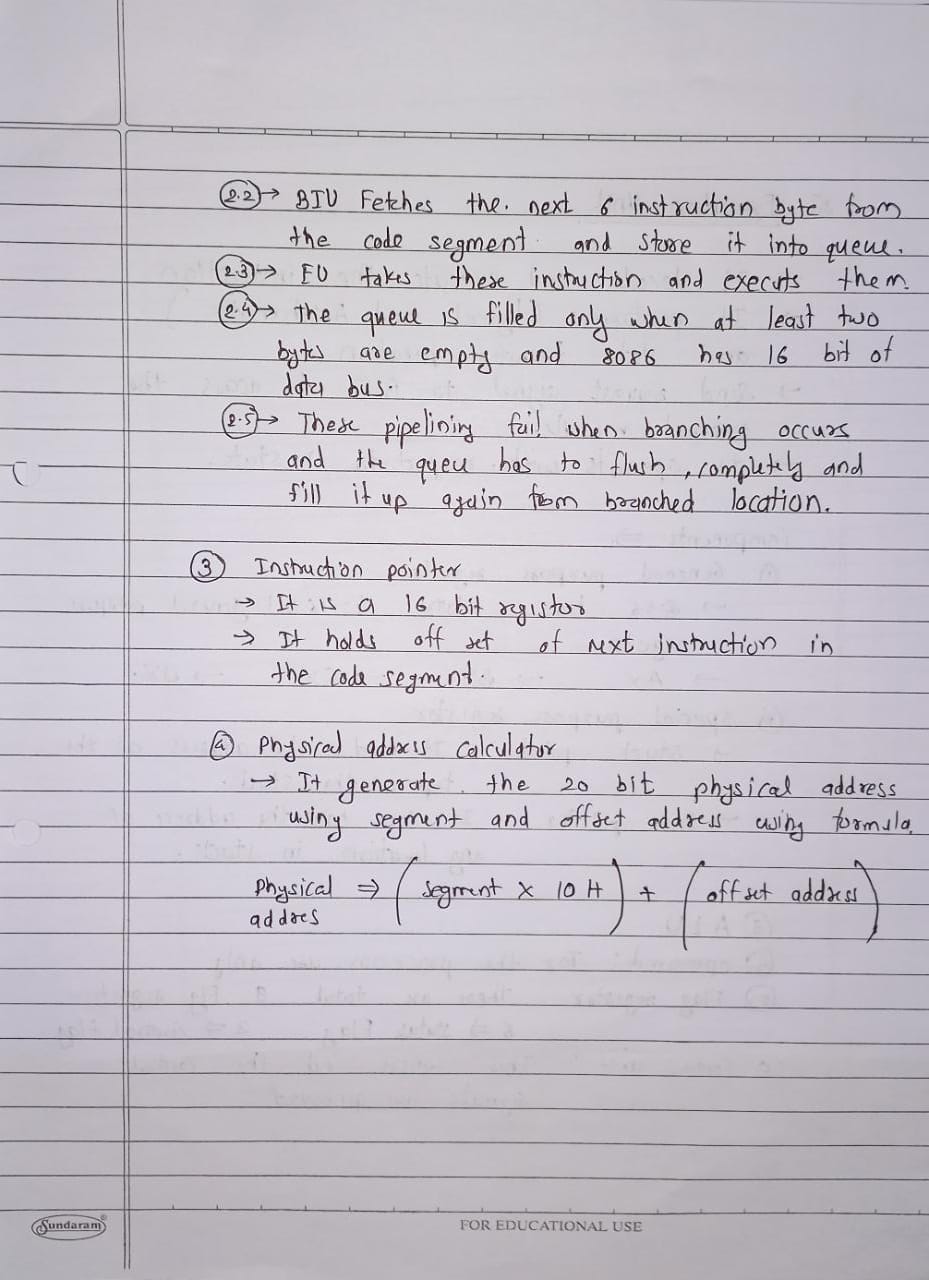 2.2 → BIU Fetches the. next 6 instruction byte from
the code segment. and store it into queue.
2.3 → EU takes these instruction and executs them.
2.4 → The queue is filled only when at least two
bytes are empty and 8086 has 16 bit of
data bus.
2.5 → These pipelining fail when branching occurs
and the queu has to flush, completely and
fill it up again from branched location.
3 Instruction pointer
→ It is a 16 bit registor
→ It holds off set of next instruction in
the code segment.
4 Physical address calculator
→ It generate the 20 bit physical address
using segment and offset address using formula.
Physical ⇒ (segment × 10 H) + (off set address)
addres
Sundaram
FOR EDUCATIONAL USE